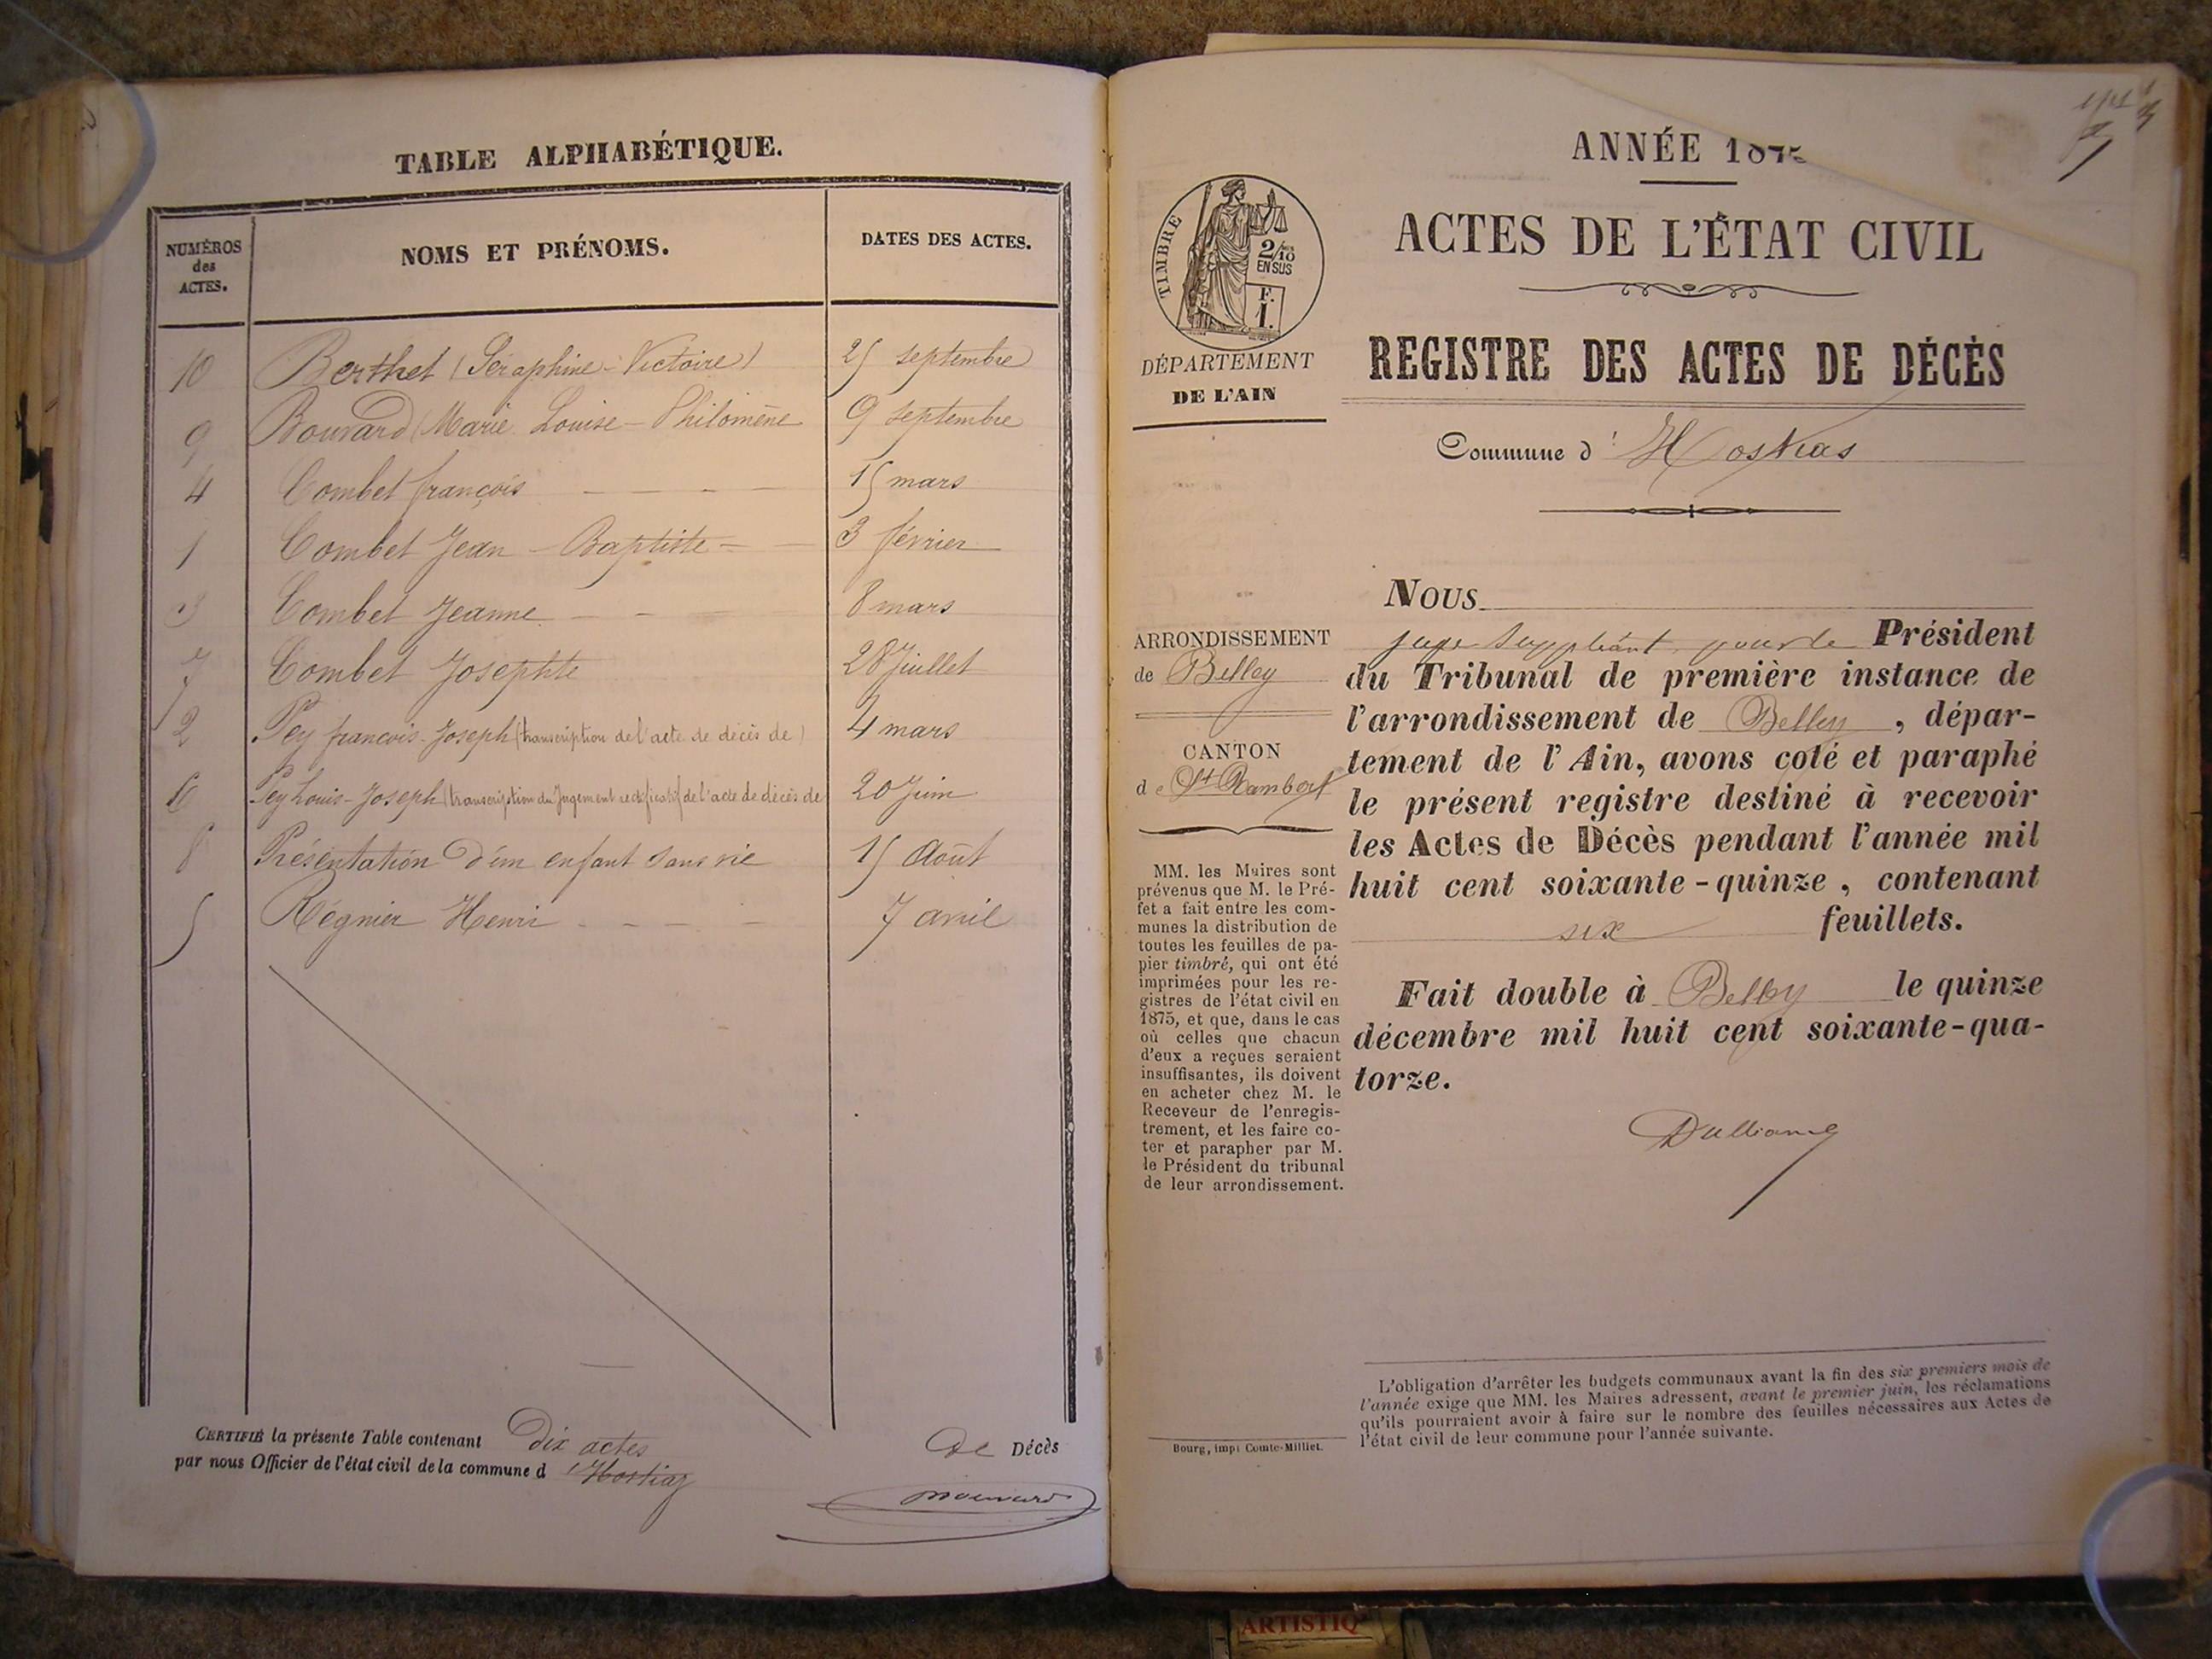 TABLE ALPHABÉTIQUE.
NUMÉROS
des
ACTES.
NOMS ET PRÉNOMS.
DATES DES ACTES.
10 Berthet (Séraphine-Victoire) 25 septembre
9 Bouvard (Marie Louise-Philomène 9 septembre
4 Combet françois 15 mars
1 Combet Jean-Baptiste 3 février
3 Combet Jeanne 8 mars
7 Combet Josephte 28 Juillet
2 Pey francois-Joseph (transcription de l'acte de décès de) 4 mars
6 Pey Louis-Joseph (transcription du Jugement rectificatif de l'acte de décès de 20 Juin
8 Présentation d'un enfant sans vie 15 Août
5 Régnier Henri 7 avril
CERTIFIÉ la présente Table contenant Dix actes de Décès
par nous Officier de l'état civil de la commune d'Hostiaz
Bouvard
ANNÉE 1875
ACTES DE L'ÉTAT CIVIL
TIMBRE
2/10
EN SUS
F.
1.
DÉPARTEMENT
DE L'AIN
REGISTRE DES ACTES DE DÉCÈS
Commune d'Hostias
ARRONDISSEMENT
de Belley
CANTON
de St Rambert
MM. les Maires sont
prévenus que M. le Pré-
fet a fait entre les com-
munes la distribution de
toutes les feuilles de pa-
pier timbré, qui ont été
imprimées pour les re-
gistres de l'état civil en
1875, et que, dans le cas
où celles que chacun
d'eux a reçues seraient
insuffisantes, ils doivent
en acheter chez M. le
Receveur de l'enregis-
trement, et les faire co-
ter et parapher par M.
le Président du tribunal
de leur arrondissement.
Bourg, imp. Comte-Milliet.
NOUS
juge suppléant, pour le Président
du Tribunal de première instance de
l'arrondissement de Belley, dépar-
tement de l'Ain, avons coté et paraphé
le présent registre destiné à recevoir
les Actes de Décès pendant l'année mil
huit cent soixante-quinze, contenant
six feuillets.
Fait double à Belley le quinze
décembre mil huit cent soixante-qua-
torze.
L'obligation d'arrêter les budgets communaux avant la fin des six premiers mois de
l'année exige que MM. les Maires adressent, avant le premier juin, les réclamations
qu'ils pourraient avoir à faire sur le nombre des feuilles nécessaires aux Actes de
l'état civil de leur commune pour l'année suivante.
ARTISTIQ